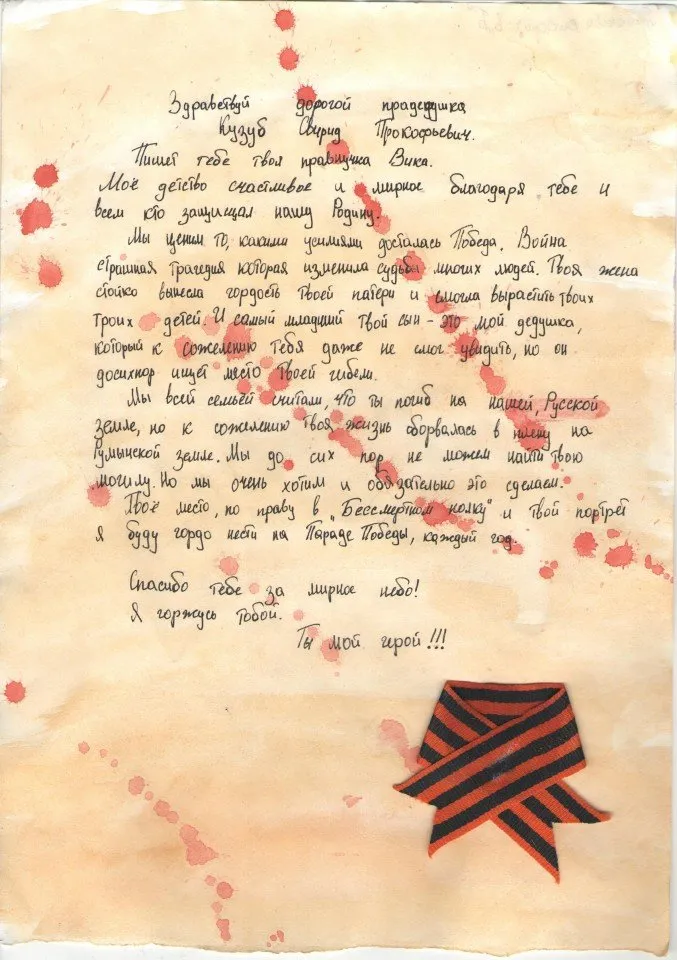 Здравствуй дорогой прадедушка
Кузуб Свирид Прокофьевич.
Пишет тебе твоя правнучка Вика.
Моё детство счастливое и мирное благодаря тебе и
всем кто защищал нашу Родину.
Мы ценим то, какими усилиями досталась Победа. Война
страшная трагедия которая изменила судьбы многих людей. Твоя жена
стойко вынесла гордость твоей патери и смогла вырастить твоих
троих детей. И самый младший твой сын - это мой дедушка,
который к сожелению тебя даже не смог увидить, но он
досихпор ищет место твоей гибели.
Мы всей семьёй считали, что ты погиб на нашей, Русской
земле, но к сожелению твоя жизнь оборвалась в плену на
Румынской земле. Мы до сих пор не можем найти твою
могилу. Но мы очень хотим и обязательно это сделаем.
Твоё место, по праву в "Бессмертном полку" и твой портрет
я буду гордо нести на Параде Победы, каждый год.
Спасибо тебе за мирное небо!
Я горжусь тобой.
Ты мой герой!!!